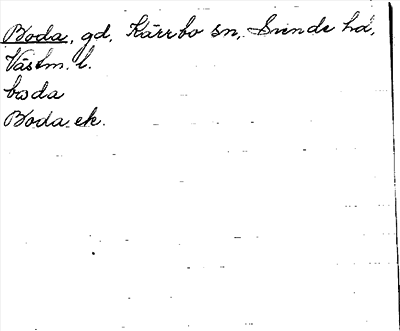 Boda, gd, Kärrbo sn, Siende hd,
Västm. l.
boda
Boda ek.